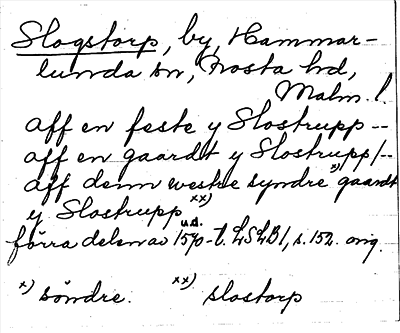 Slogstorp, by, Hammar-
lunda sn, Frosta hd,
Malm. l.
aff en feste y Slostrupp --
aff en gaardt y Slostrupp/--
aff denn westre syndre x) gaardt
y Slostrupp xx)
u.d.
förra delen av 1570-t. LSLB1, s. 152. orig.
x) söndre. xx) slostorp